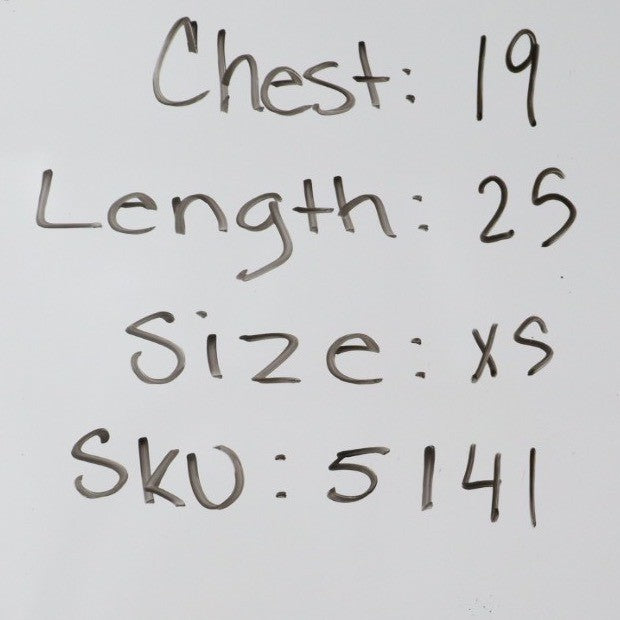 Chest: 19
Length: 25
Size: XS
SKU: 5141